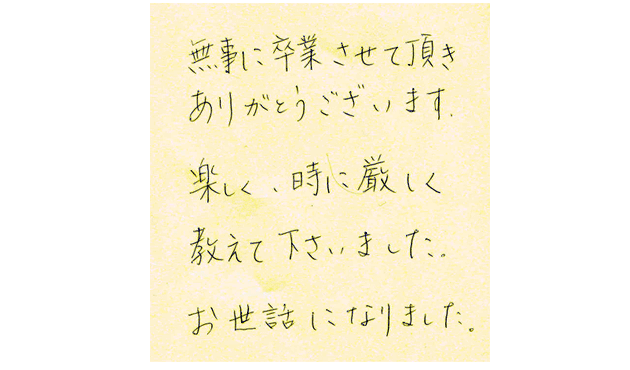 無事に卒業させて頂き
ありがとうございます.
楽しく、時に厳しく
教えて下さいました。
お世話になりました。